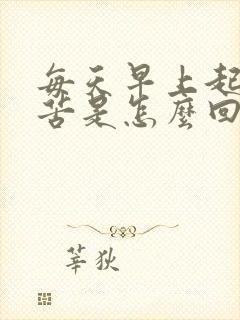 每天早上起
苦是怎麼回
莘狄